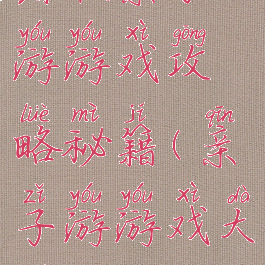 yóu yóu xì gōng
游游戏攻
lüè mì jí qīn
略秘籍(亲
zǐ yóu yóu xì dà
子游游戏大